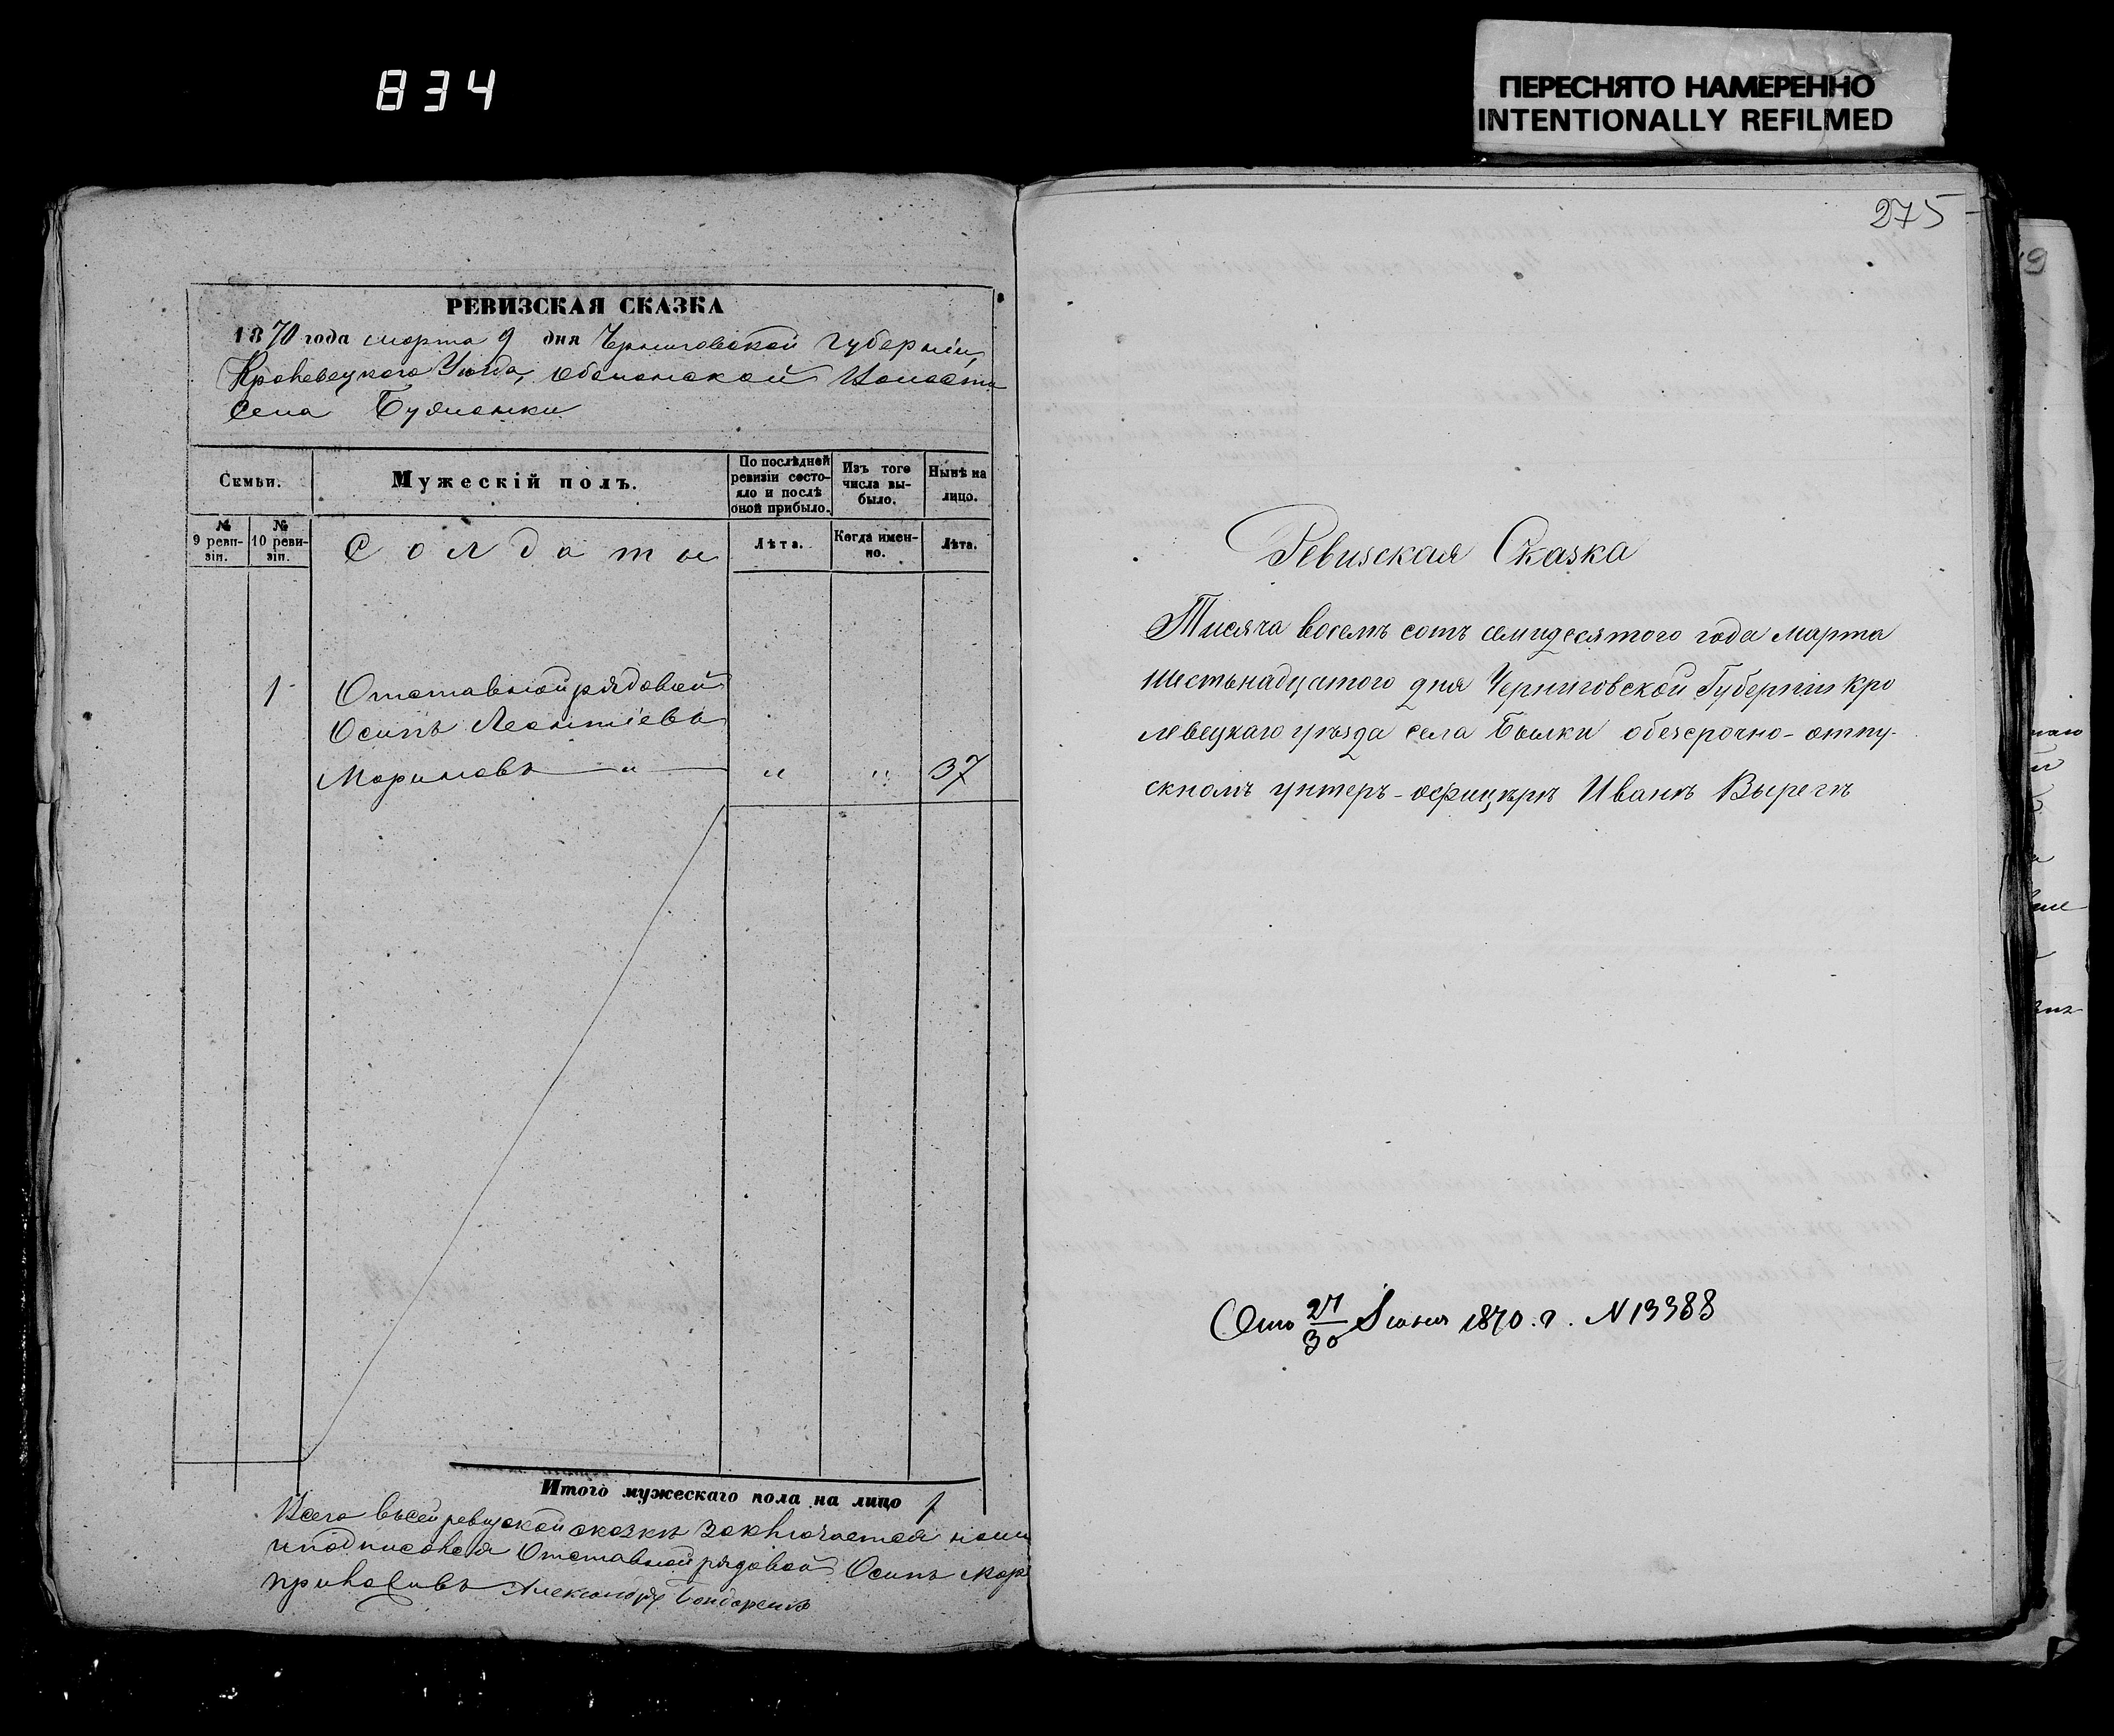 834
ПЕРЕСНЯТО НАМЕРЕННО
INTENTIONALLY REFILMED
РЕВИЗСКАЯ СКАЗКА
1870 года марта 9 дня Черниговской Губерніи,
Кролевецкого Уезда, Обтовской Волости
Села Буйванки
Семьи.
Мужескій полъ.
По послѣдней ревизіи состояло и послѣ оной прибыло.
Изъ того числа выбыло.
Нынѣ на лицо.
№ 9 ревизіи.
№ 10 ревизіи.
Солдаты
Лѣта.
Когда именно.
Лѣта.
1
Отставной рядовой
Осипъ Леонтіевъ
Мариновъ — „ —
„ „ 37
Итого мужескаго пола на лицо 1
Всего въ сей ревизской сказкѣ заключается
и подписался Отставной рядовой Осипъ Мар
приложивъ Александръ Бондаренко
275
Ревизская Сказка
Тисяча восемъ сотъ семидесятого года марта
шестьнадцатого дня Черниговской Губерніи Кро
левецкаго уѣзда села Былки обезсрочно-отпу-
скномъ унтеръ-офицѣрѣ Иванѣ Вырегѣ
Отъ 27/30 Іюня 1870. г. N 13388